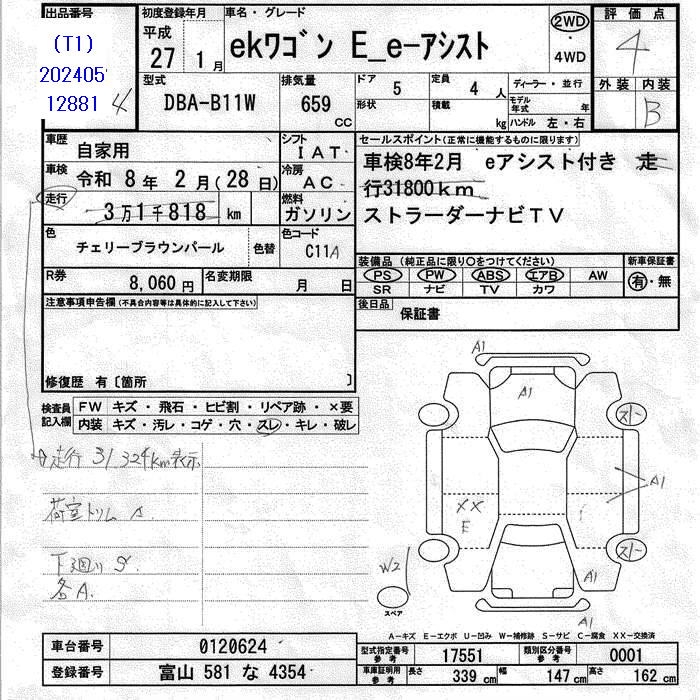 出品番号
(T1)
202405
12881 4
初度登録年月
平成
27年 1月
車名・グレード
ekワゴン E_e-アシスト
2WD
・
4WD
評価点
4
外装 内装
B
型式
DBA-B11W
排気量
659 CC
ドア 5
形状
定員 4人
積載 kg
ディーラー・並行
モデル年式 年
ハンドル 左・右
車歴 自家用
シフト IAT
車検 令和 8年 2月(28日)
冷房 AC
走行 3万1千818 km
燃料 ガソリン
色 チェリーブラウンパール 色替
色コード C11A
R券 8,060円
名変期限 月 日
セールスポイント(正常に機能するものに限ります)
車検8年2月 eアシスト付き 走
行31800km
ストラーダーナビTV
装備品(純正品に限り○をつけてください)
PS PW ABS エアB AW
SR ナビ TV カワ
新車保証書
有・無
後日品 保証書
注意事項申告欄(不具合内容等は具体的に記入して下さい)
修復歴 有〔箇所 〕
検査員
記入欄
FW キズ・飛石・ヒビ割・リペア跡・×要
内装 キズ・汚レ・コゲ・穴・スレ・キレ・破レ
走行 31,324km表示
荷室トリム A
下廻り S
各A.
A1
A1
スト-
A1
XX
E
W2
スト-
A1
スペア
A1
A-キズ E-エクボ U-凹み W-補修跡 S-サビ C-腐食 XX-交換済
車台番号 0120624
登録番号 富山 581 な 4354
型式指定番号 参考 17551
類別区分番号 参考 0001
車庫証明用 参考 長さ 339 cm 幅 147 cm 高さ 162 cm